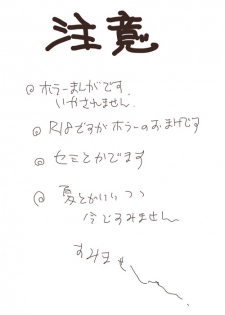 注意
@ ホラーまんがです.
いやされません.
@ R18ですがホラーのおまけです
@ セミとかでます
@ 夏とかいいつつ
今ごろすみません
すみません